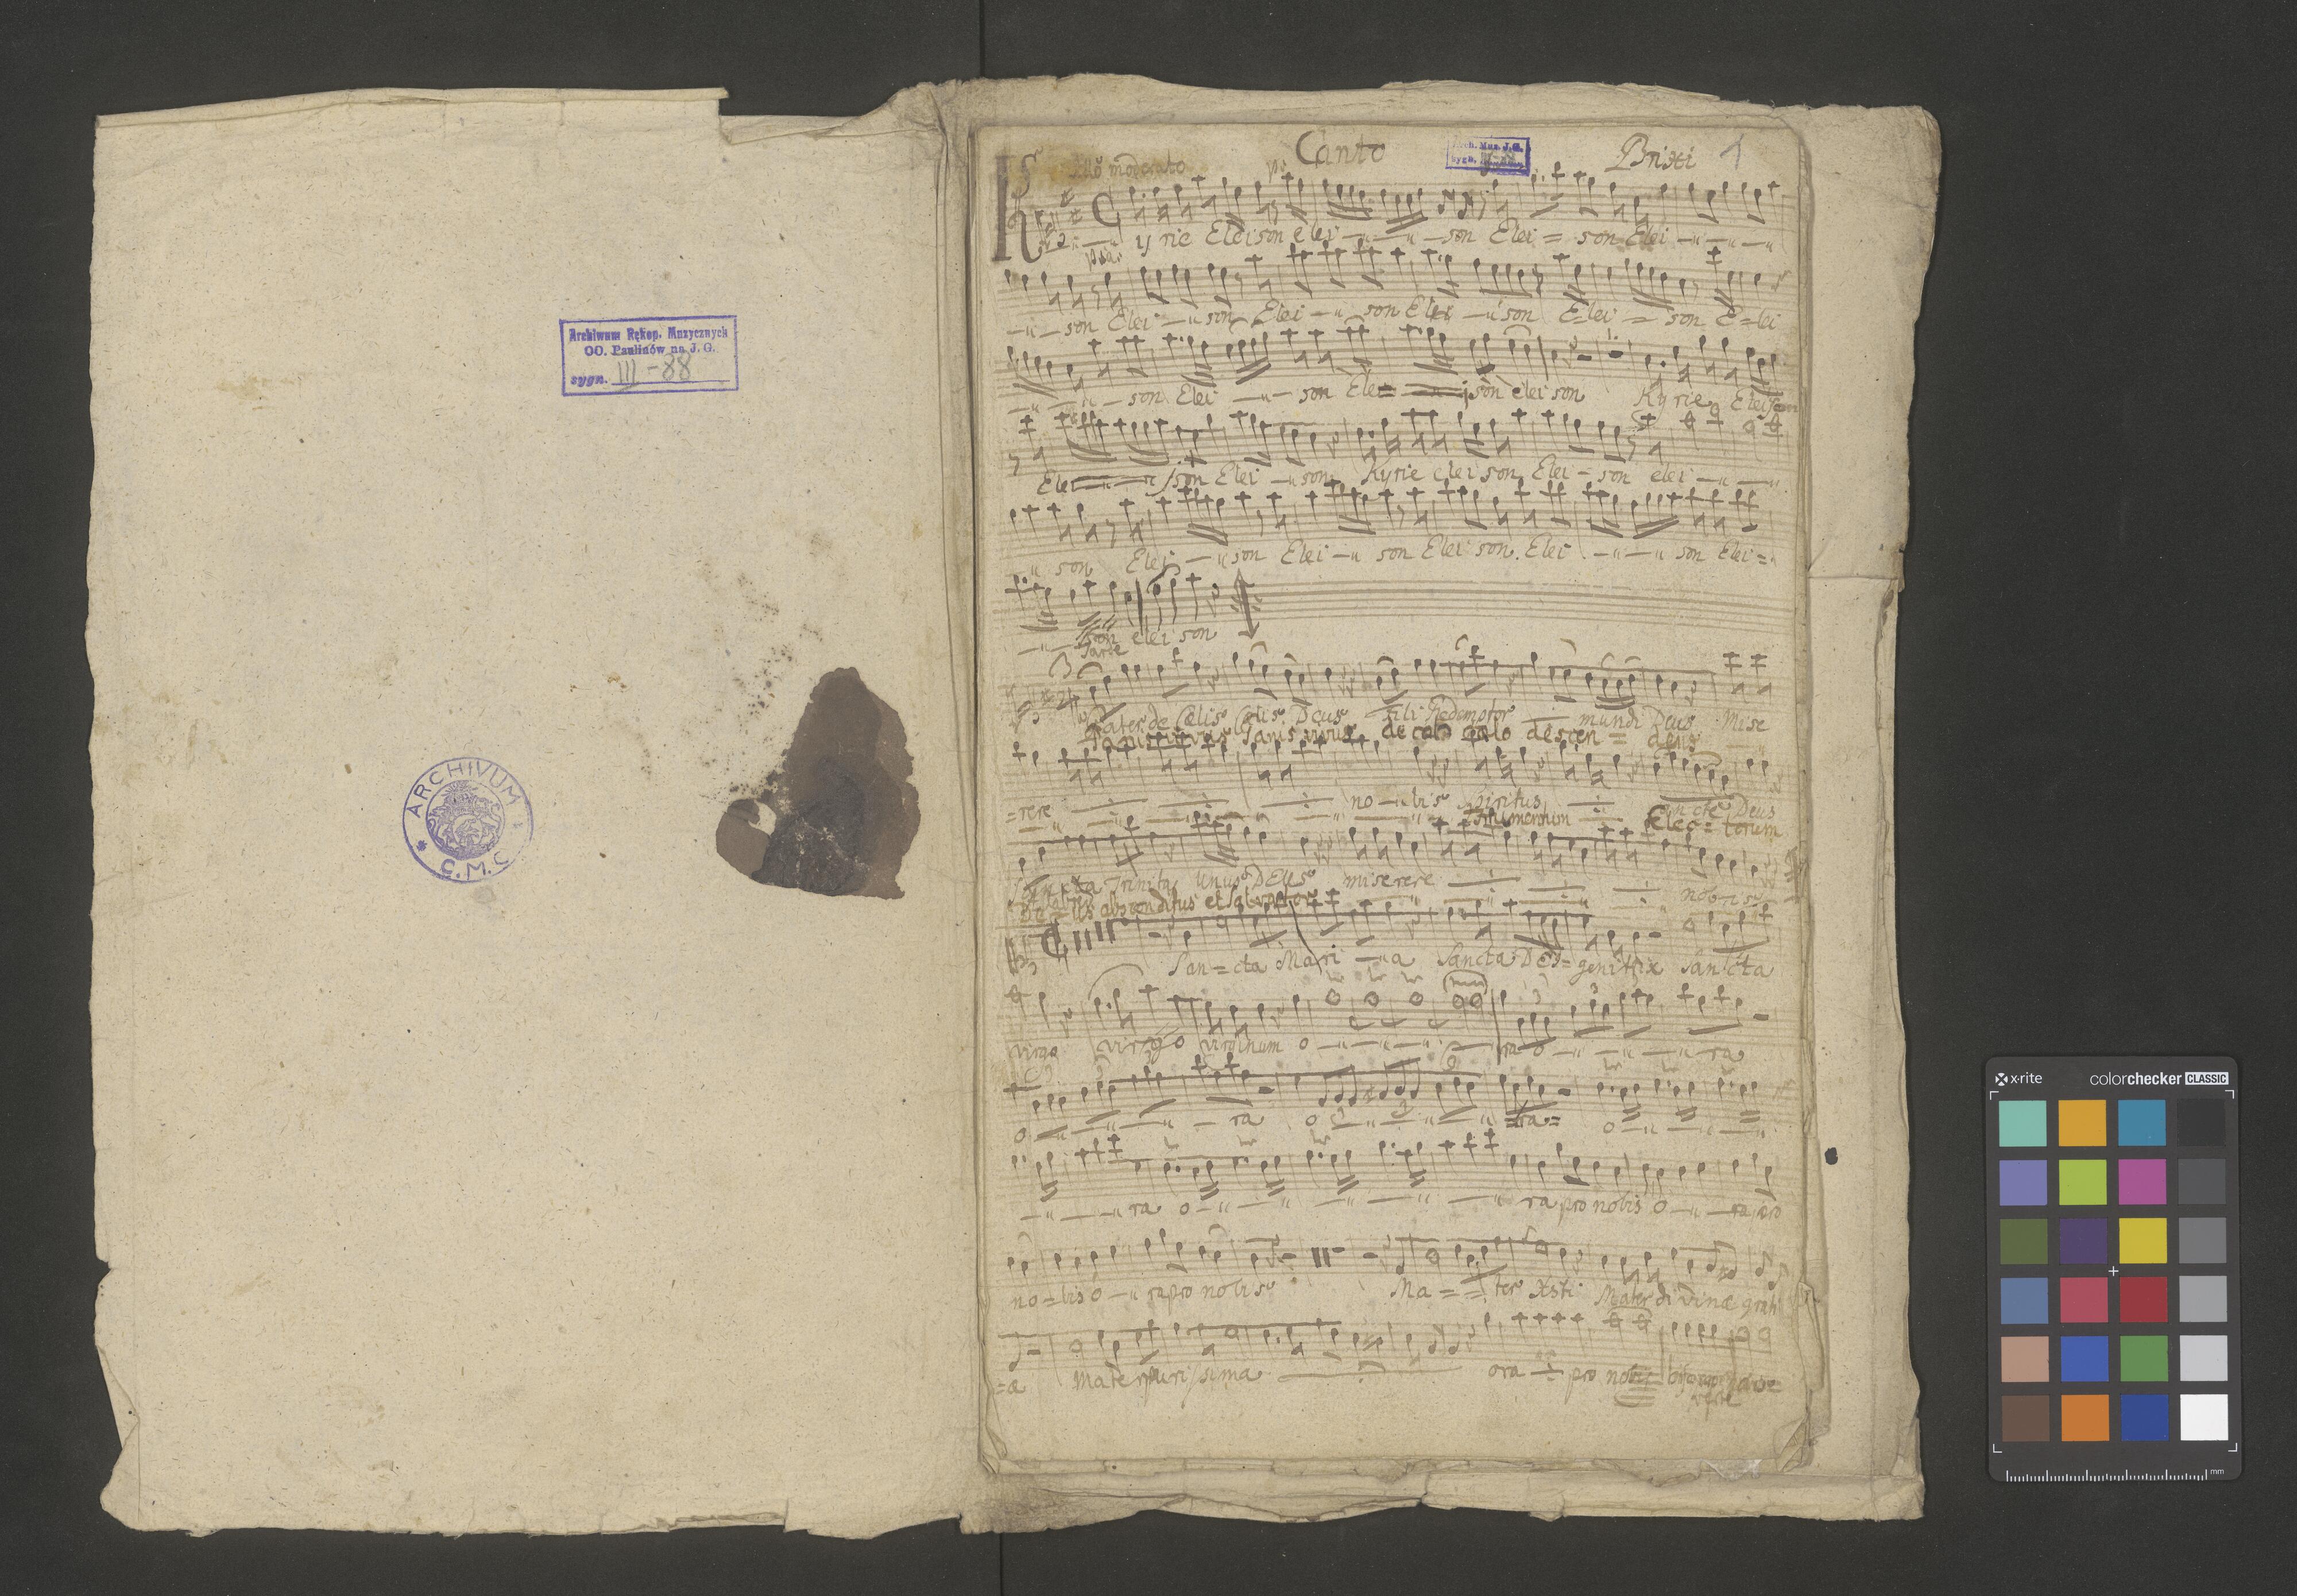 Archiwum Rękop. Muzycznych
OO. Paulinów na J. G.
sygn. III-88
ARCHIVUM
* C.M.C
Canto
Arch. Muz. J.G.
sygn.
1
moderato
Kyrie Eleison elei -"-"- son Elei = son Elei -"-"-"
-"- son Elei -" son Elei -" son Elei -" son E=lei = son E=lei
-"-"- son Elei -"- son Elei son elei son Kyrie Eleison
Elei son Elei -" son Kyrie elei son Elei - son elei -"-"
-" son Elei -" son Elei -" son Elei son Elei -"-" son Elei =
-"- son elei son
Pater de Cælis Cælis Deus fili Redemptor mundi Deus Mise
Panis vivus Panis vivus de cælo cælo descen = dens
=rere no -" bis Spiritus Sancte Deus
frumentum Elec = torum
Sancta Trinitas Unus DEus miserere nobis
De = us absconditus et Salvator
San = cta Mari -" a Sancta Dei = genitrix Sancta
virgo virgo virginum o -"-"-" ra o -"-"-" ra
o -"-"-" - ra o -"-"-" =ra= o -"-"-"
-"-"-" ra o -"-"-"-"-" ra pro nobis o -"- ra pro
no = bis o -" ra pro nobis Ma == ter Xsti Mater divinæ grati
=æ Mater purissima ora pro nobis